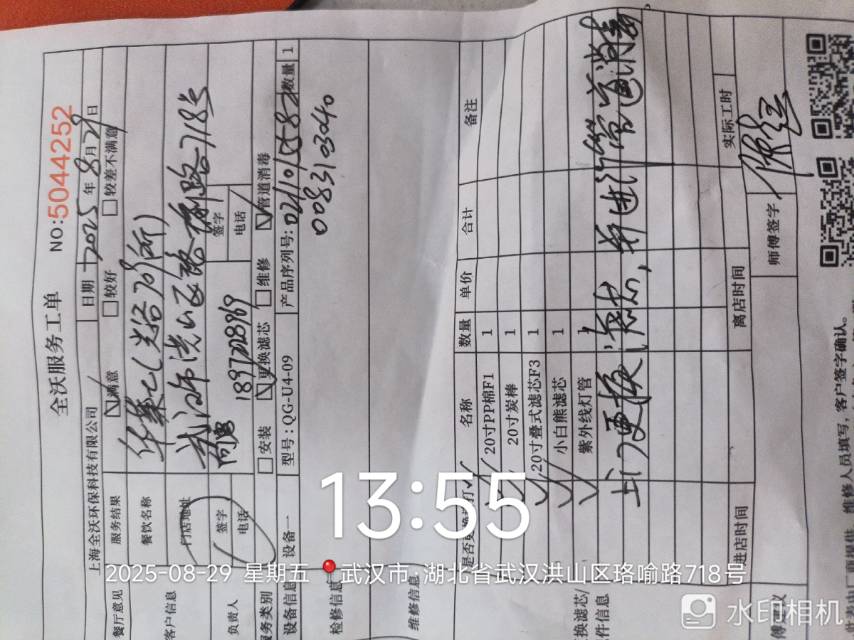 全沃服务工单
NO:5044252
上海全沃环保科技有限公司
日期 2025年8月29日
餐厅意见
服务结果
满意
较好
较差不满意
客户信息
餐饮名称
门店地址
武汉市洪山区珞喻路718号
负责人
签字
电话
18972028969
签字
电话
服务类别
安装
更换滤芯
维修
管道消毒
设备信息
设备一
型号: QG-U4-09
产品序列号:
数量 1
0083103040
检修信息
维修信息
名称
数量
单价
合计
备注
20寸PP棉F1 1
20寸炭棒 1
20寸叠式滤芯F3 1
小白熊滤芯 1
紫外线灯管 1
上门更换滤芯,并进行管道消毒
进店时间
离店时间
实际工时
师傅签字
维修人员填写,客户签字确认。
13:55
2025-08-29 星期五 武汉市·湖北省武汉洪山区珞喻路718号
水印相机